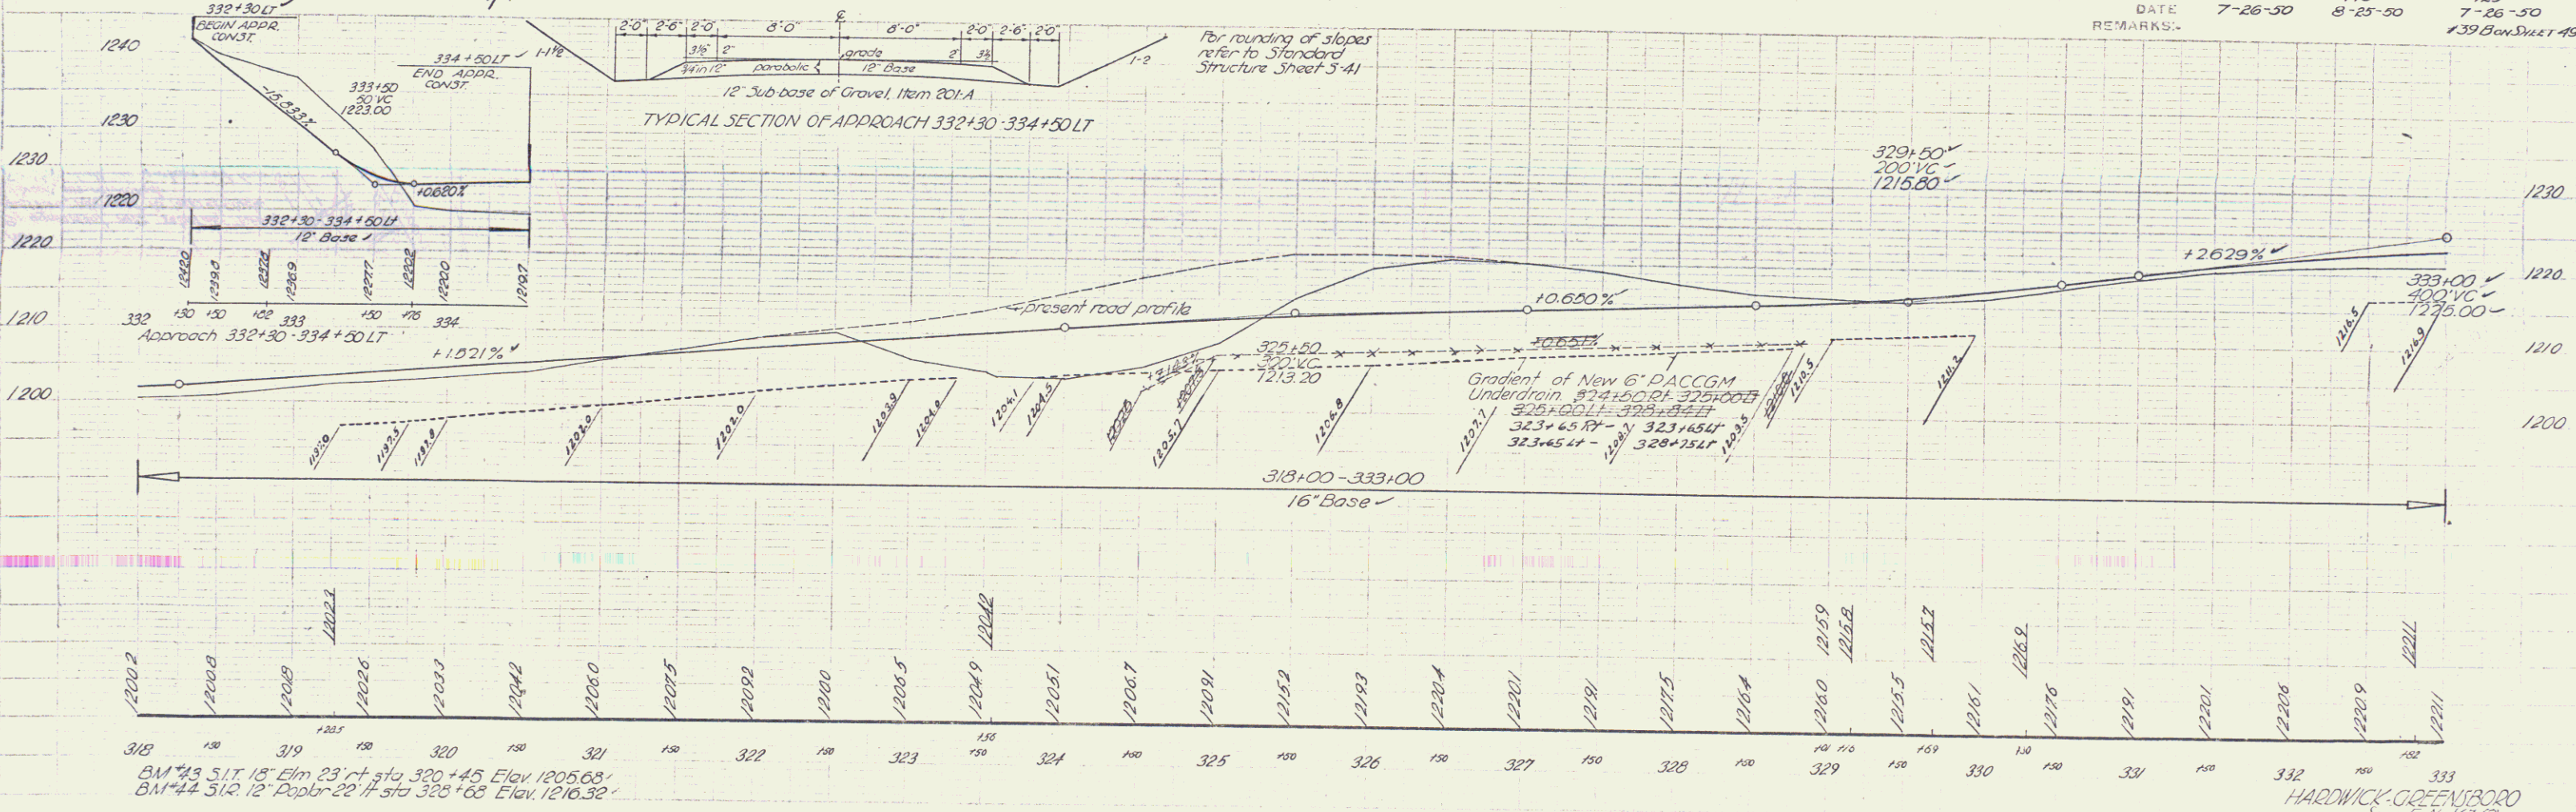 332+30 LT
BEGIN APPR.
CONST.
334+50 LT
END APPR.
CONST.
333+50
50'VC
1223.00
-15.833%
+0.620%
332+30-334+50 Lt
12" Base
1240
1230
1220
1242.0
1239.8
1237.8
1236.9
1227.7
1220.2
1220.0
1219.7
332
+30
+50
+82
333
+50
+76
334
Approach 332+30-334+50 LT
1-1½
2'-0"
2'-6"
2'-0"
8'-0"
8'-0"
2'-0"
2'-6"
2'-0"
3½"
2"
grade
2"
3½
¾ in 12"
parabolic
12" Base
1-2
12" Sub-base of Gravel, Item 201-A
TYPICAL SECTION OF APPROACH 332+30-334+50 LT
For rounding of slopes
refer to Standard
Structure Sheet S-41
DATE 7-26-50 8-25-50 7-26-50
REMARKS:-
#39 B on SHEET 49
1230
1220
1210
1200
1230
1220
1210
1200
329+50
200'VC
1215.80
+2.629%
333+00
400'VC
1225.00
present road profile
+0.650%
+1.521%
325+50
300'VC
1213.20
+0.651%
Gradient of New 6" PACCGM
Underdrain 324+50 Rt - 325+00 LT
325+00 Lt - 328+84 LT
323+65 Rt - 323+65 LT
323+65 Lt - 328+75 LT
1197.5
1202.0
1203.9
1204.1
1204.5
1205.7
1206.8
1207.7
1208.7
1209.5
1210.5
1211.2
1216.5
1216.9
318+00-333+00
16" Base
1202.3
1204.2
1215.9
1215.8
1215.7
1216.9
1221.1
1200.2
1200.8
1201.8
1202.6
1203.3
1204.2
1206.0
1207.5
1209.2
1210.0
1206.5
1204.9
1205.1
1206.7
1209.1
1215.2
1219.3
1220.4
1220.1
1219.1
1217.5
1216.4
1216.0
1215.5
1216.1
1217.6
1219.1
1220.1
1220.6
1220.9
1221.1
318
+50
319
+28.5
+50
320
+50
321
+50
322
+50
323
+50
+56
324
+50
325
+50
326
+50
327
+50
328
+50
329
+01
+16
+50
+69
330
+30
+50
331
+50
332
+50
+82
333
BM #43 S.I.T. 18" Elm 23' rt sta 320+45 Elev. 1205.68
BM #44 S.I.R. 12" Poplar 22' lt sta 328+68 Elev. 1216.32
HARDWICK-GREENSBORO